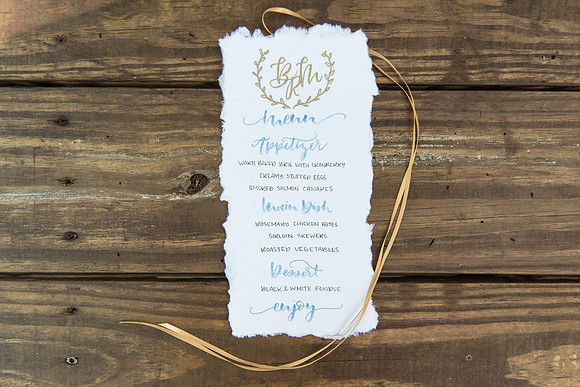 BRM
menu
Appetizer
WARM BAKED BRIE WITH CRANBERRY
CREAMY STUFFED EGGS
SMOKED SALMON CANAPES
Main Dish
ROSEMARY CHICKEN BITES
SIRLOIN SKEWERS
ROASTED VEGETABLES
Dessert
BLACK & WHITE FONDUE
enjoy